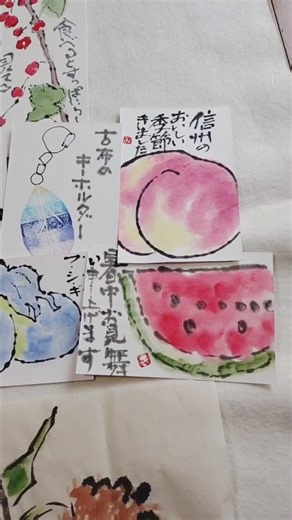 食べるとすっぱい
信州の
おいしい
季節
きました
古布の
キーホルダー
暑中お見舞
いもうしあげます